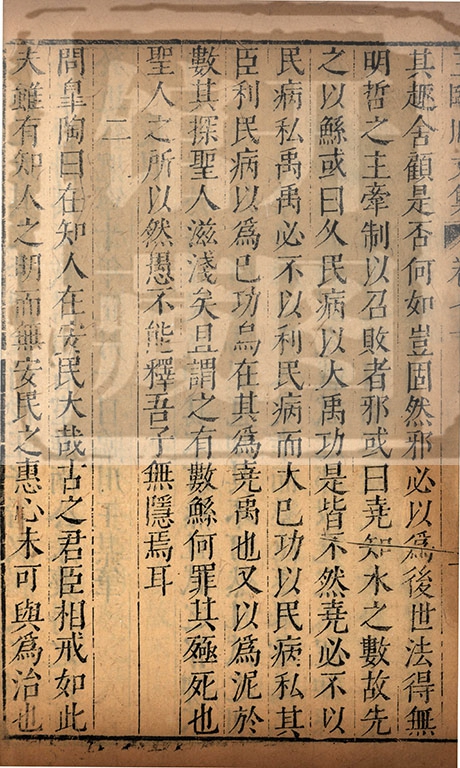 其趣舍顧是否何如豈固然邪必以為後世法得無
明哲之主牽制以召敗者邪或曰堯知水之數故先
之以鯀或曰久民病以大禹功是皆不然堯必不以
民病私禹禹必不以利民病而大巳功以民病私其
臣利民病以為巳功烏在其為堯禹也又以為泥於
數其探聖人滋淺矣且謂之有數鯀何罪其殛死也
聖人之所以然愚不能釋吾子無隱焉耳
二
問臯陶曰在知人在安民大哉古之君臣相戒如此
夫雖有知人之明而無安民之惠心未可與為治也